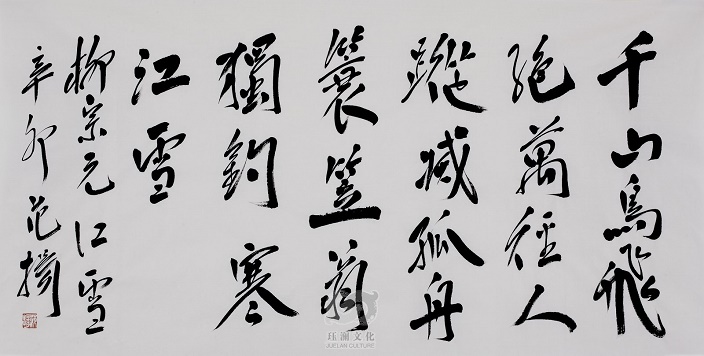 千山鳥飛
絶萬徑人
蹤滅孤舟
簑笠翁
獨釣寒
江雪
柳宗元江雪
辛卯范
珏澜文化
JUELAN CULTURE